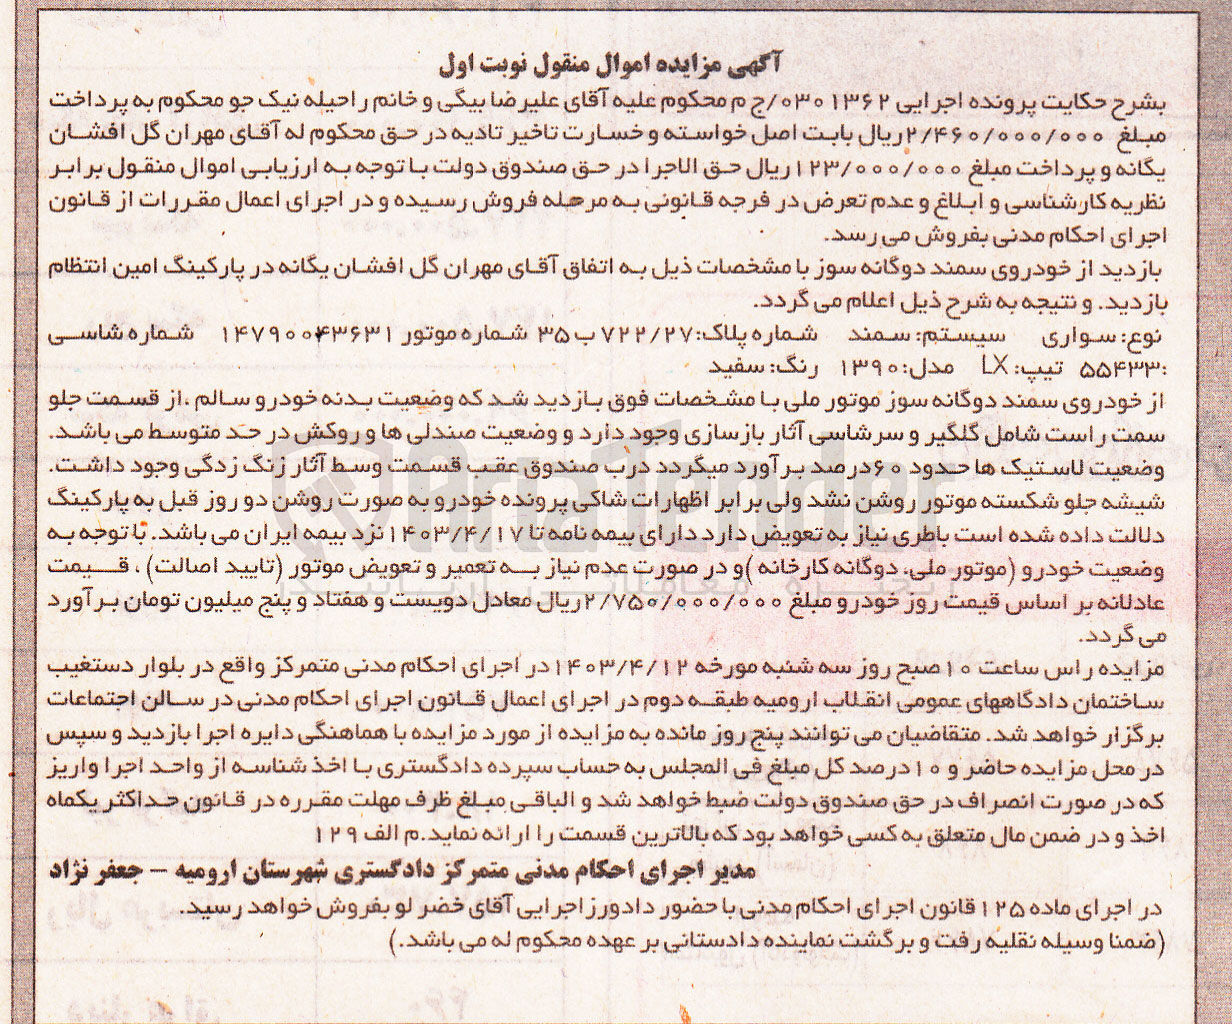 آگهی مزایده اموال منقول نوبت اول
بشرح حکایت پرونده اجرایی ۰۳۰۱۳۶۲/ج م محکوم علیه آقای علیرضا بیگی و خانم راحیله نیک جو محکوم به پرداخت
مبلغ ۲/۴۶۰/۰۰۰/۰۰۰ریال بابت اصل خواسته و خسارت تاخیر تادیه در حق محکوم له آقای مهران گل افشان
یگانه و پرداخت مبلغ ۱۲۳/۰۰۰/۰۰۰ریال حق الاجرا در حق صندوق دولت با توجه به ارزیابی اموال منقول برابر
نظریه کارشناسی و ابلاغ و عدم تعرض در فرجه قانونی به مرحله فروش رسیده و در اجرای اعمال مقررات از قانون
اجرای احکام مدنی بفروش می رسد.
بازدید از خودروی سمند دوگانه سوز با مشخصات ذیل به اتفاق آقای مهران گل افشان یگانه در پارکینگ امین انتظام
بازدید. و نتیجه به شرح ذیل اعلام می گردد.
نوع: سواری سیستم: سمند شماره پلاک: ۷۲۲/۲۷ ب ۳۵ شماره موتور ۱۴۷۹۰۰۴۳۶۳۱ شماره شاسی
:۵۵۴۳۳ تیپ: LX مدل: ۱۳۹۰ رنگ: سفید
از خودروی سمند دوگانه سوز موتور ملی با مشخصات فوق بازدید شد که وضعیت بدنه خودرو سالم ،از قسمت جلو
سمت راست شامل گلگیر و سر شاسی آثار بازسازی وجود دارد و وضعیت صندلی ها و روکش در حد متوسط می باشد.
وضعیت لاستیک ها حدود ۶۰درصد برآورد میگردد درب صندوق عقب قسمت وسط آثار زنگ زدگی وجود داشت.
شیشه جلو شکسته موتور روشن نشد ولی برابر اظهارات شاکی پرونده خودرو به صورت روشن دو روز قبل به پارکینگ
دلالت داده شده است باطری نیاز به تعویض دارد دارای بیمه نامه تا ۱۴۰۳/۴/۱۷ نزد بیمه ایران می باشد. با توجه به
وضعیت خودرو (موتور ملی، دوگانه کارخانه )و در صورت عدم نیاز به تعمیر و تعویض موتور (تایید اصالت) ، قیمت
عادلانه بر اساس قیمت روز خودرو مبلغ ۲/۷۵۰/۰۰۰/۰۰۰ریال معادل دویست و هفتاد و پنج میلیون تومان برآورد
می گردد.
مزایده راس ساعت ۱۰صبح روز سه شنبه مورخه ۱۴۰۳/۴/۱۲در اجرای احکام مدنی متمرکز واقع در بلوار دستغیب
ساختمان دادگاههای عمومی انقلاب ارومیه طبقه دوم در اجرای اعمال قانون اجرای احکام مدنی در سالن اجتماعات
برگزار خواهد شد. متقاضیان می توانند پنج روز مانده به مزایده از مورد مزایده با هماهنگی دایره اجرا بازدید و سپس
در محل مزایده حاضر و ۱۰درصد کل مبلغ فی المجلس به حساب سپرده دادگستری با اخذ شناسه از واحد اجرا واریز
که در صورت انصراف در حق صندوق دولت ضبط خواهد شد و الباقی مبلغ ظرف مهلت مقرره در قانون حداکثر یکماه
اخذ و در ضمن مال متعلق به کسی خواهد بود که بالاترین قسمت را ارائه نماید.م الف ۱۲۹
مدیر اجرای احکام مدنی متمرکز دادگستری شهرستان ارومیه - جعفر نژاد
در اجرای ماده ۱۲۵قانون اجرای احکام مدنی با حضور دادورز اجرایی آقای خضر لو بفروش خواهد رسید.
(ضمنا وسیله نقلیه رفت و برگشت نماینده دادستانی بر عهده محکوم له می باشد.)
AriaTender